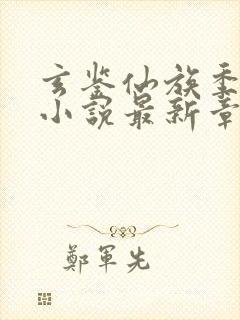 玄鉴仙族季
小說最新章
鄭軍先